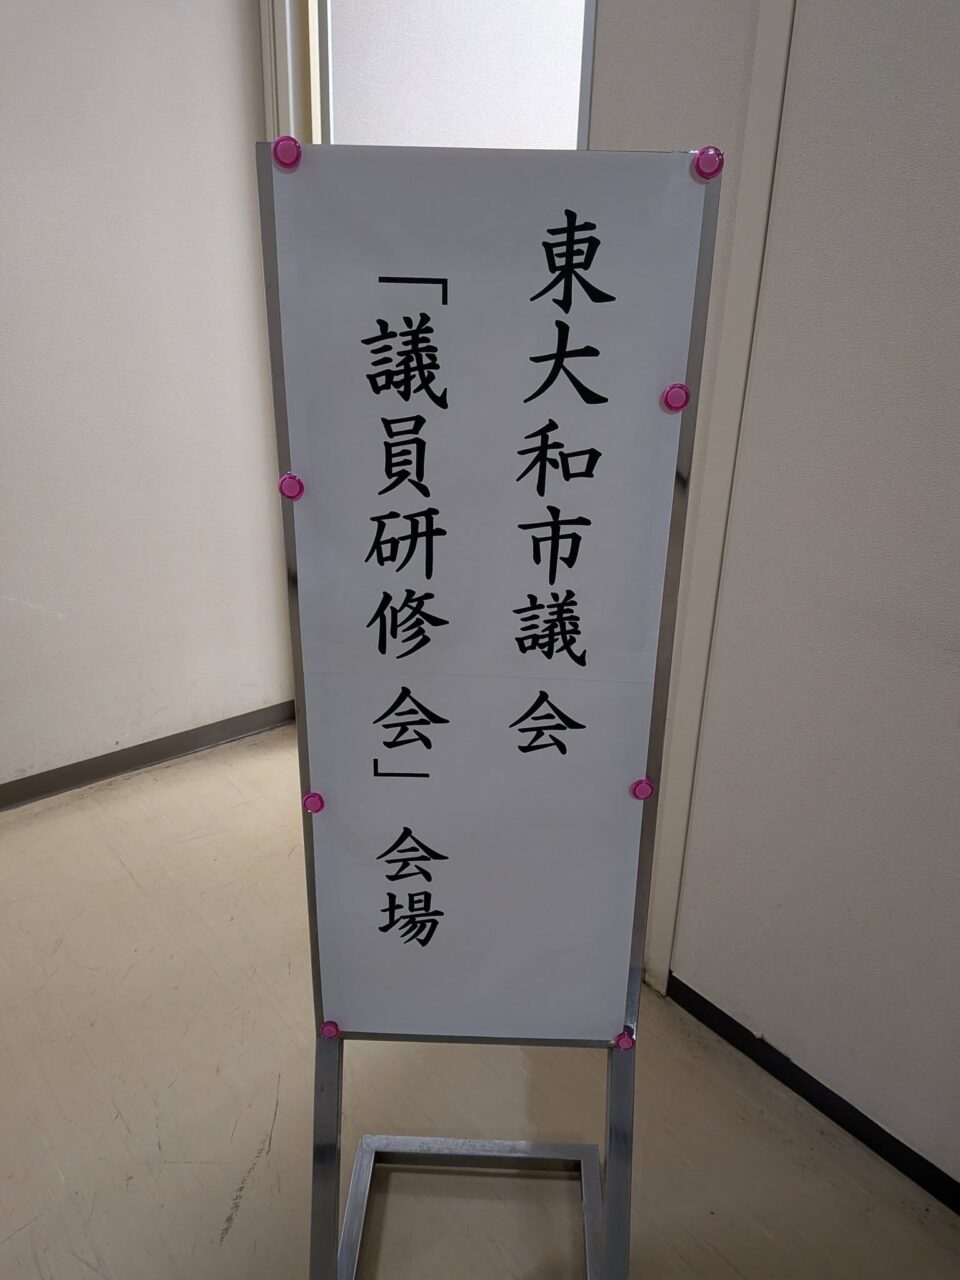 東大和市議会
「議員研修会」 会場